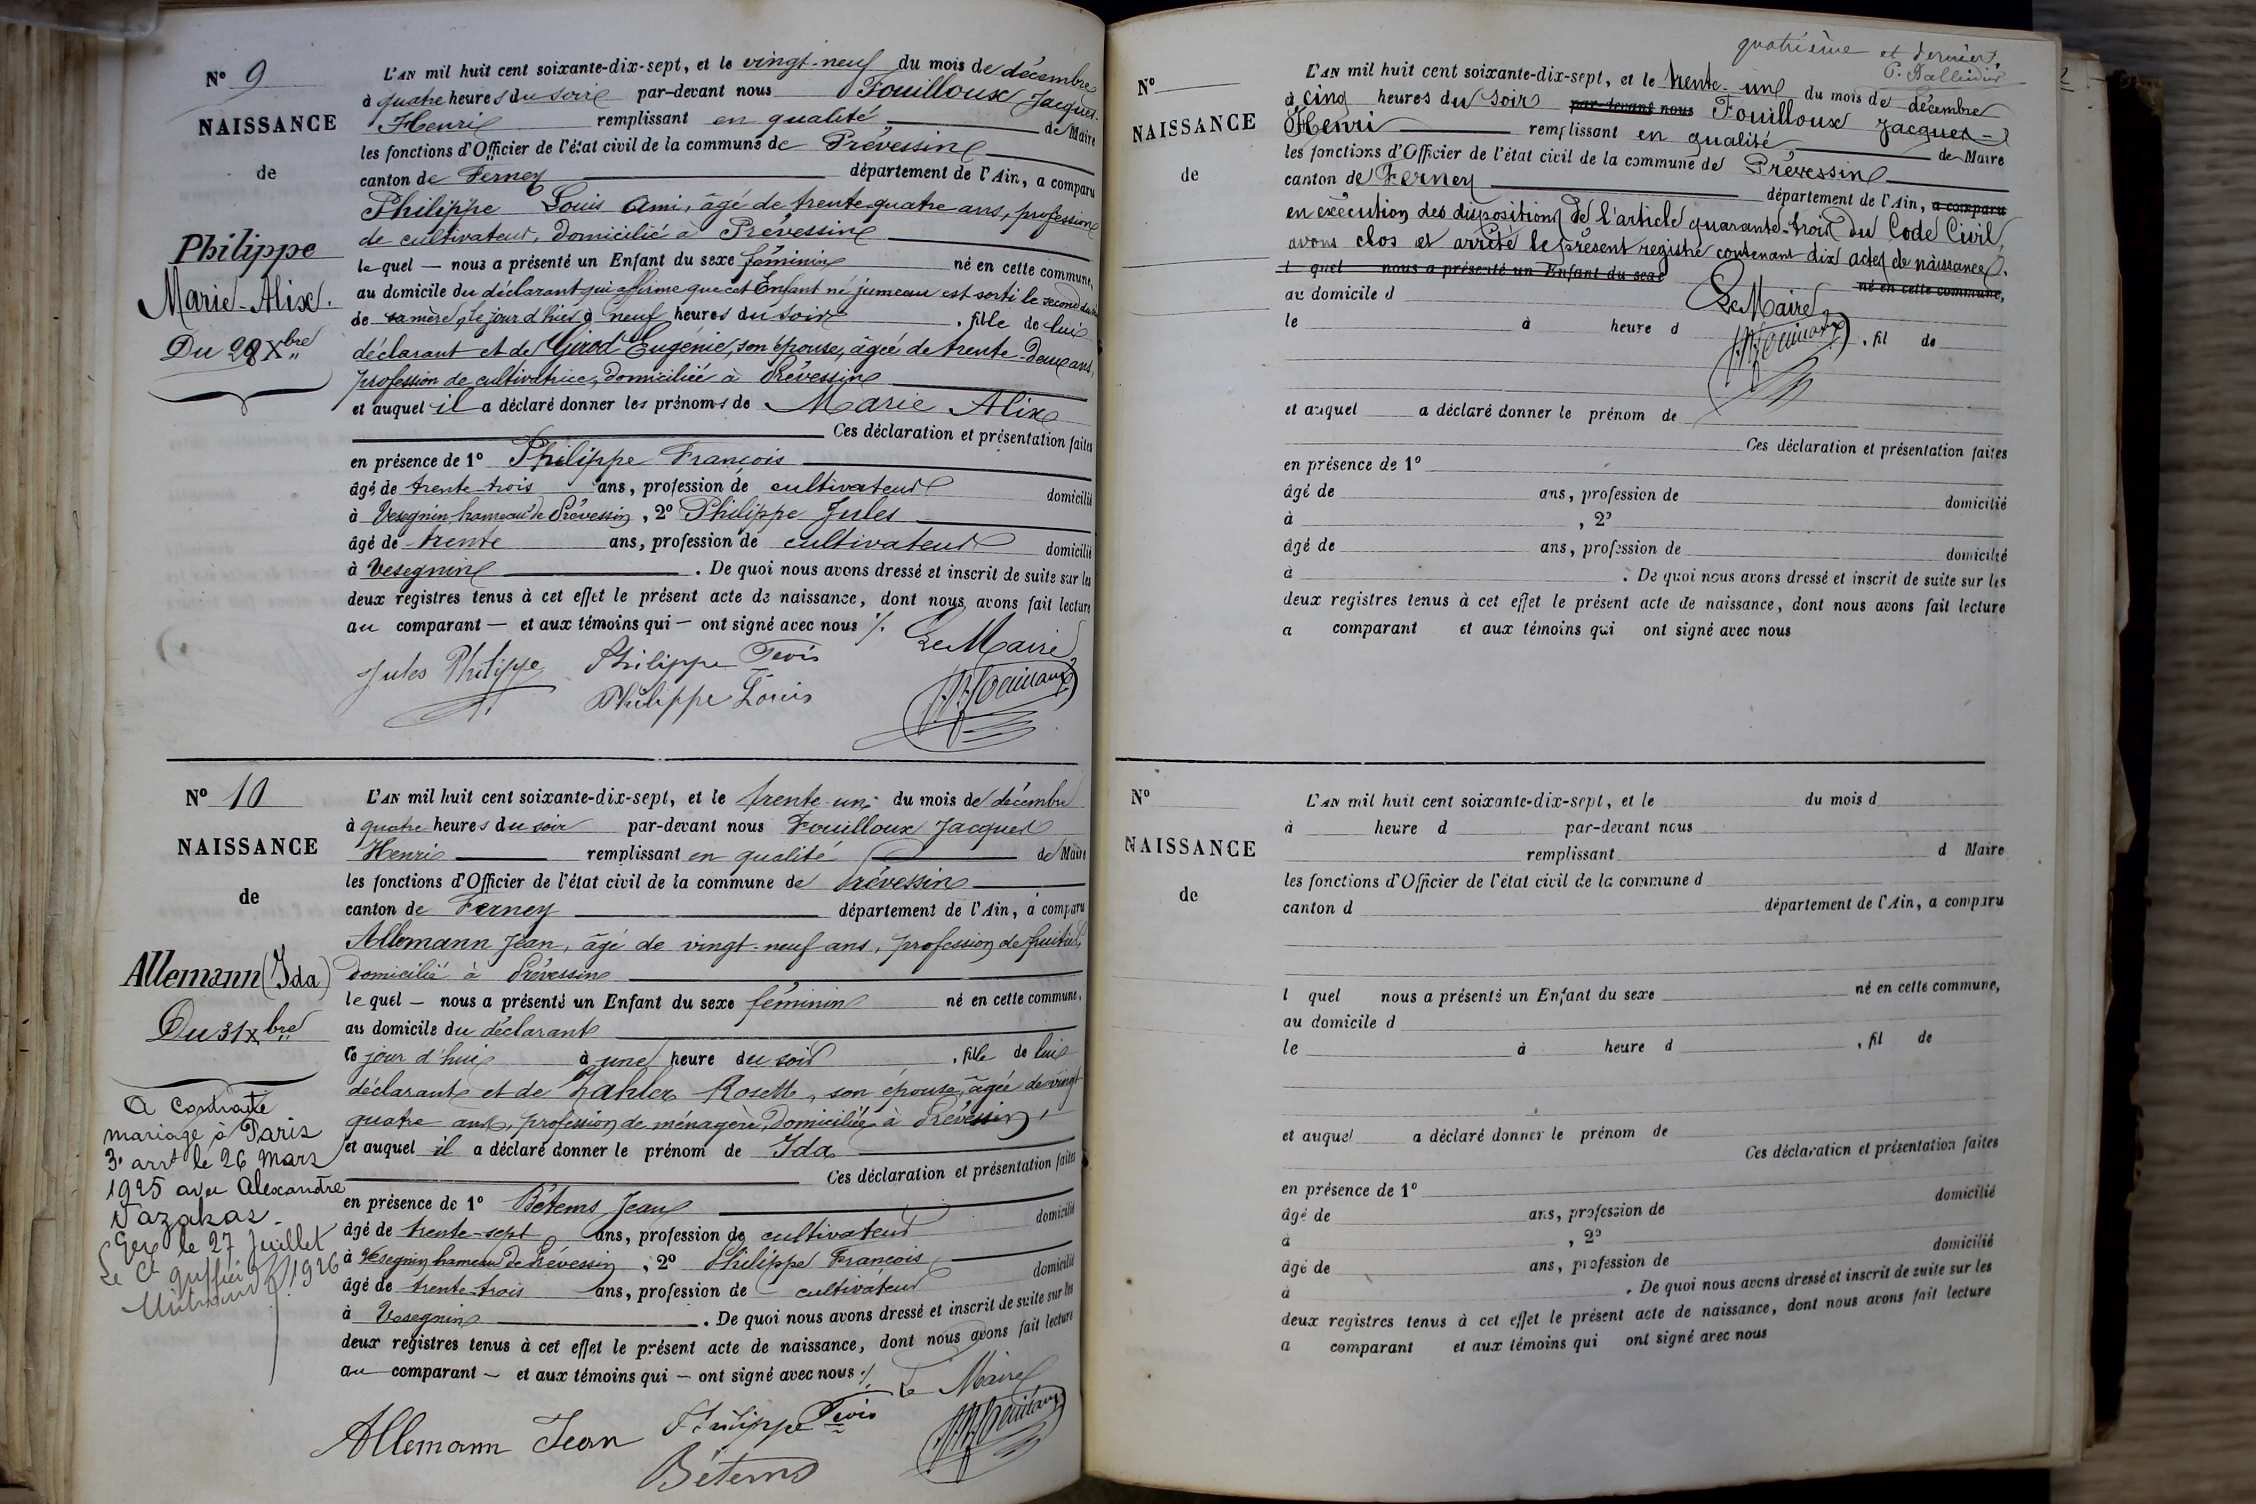 N° 9
NAISSANCE
de
Philippe
Marie-Alix.
Du 28 Xbre
L'AN mil huit cent soixante-dix-sept, et le vingt-neuf du mois de décembre
à quatre heures du soir par-devant nous Fouilloux Jacques
Henri remplissant en qualité de Maire
les fonctions d'Officier de l'état civil de la commune de Prévessin
canton de Ferney département de l'Ain, a comparu
Philippe Louis Ami, âgé de trente-quatre ans, profession
de cultivateur, domicilié à Prévessin
lequel — nous a présenté un Enfant du sexe féminin né en cette commune,
au domicile du déclarant qui affirme que cet Enfant né jumeau est sorti le second du sein
de sa mère, le jour d'hier à neuf heures du soir, fille de lui
déclarant et de Girod Eugénie, son épouse, âgée de trente-deux ans,
profession de cultivatrice, domiciliée à Prévessin
et auquel il a déclaré donner les prénoms de Marie Alix
Ces déclaration et présentation faites
en présence de 1° Philippe François
âgé de trente-trois ans, profession de cultivateur domicilié
à Vesegnin hameau de Prévessin, 2° Philippe Jules
âgé de trente ans, profession de cultivateur domicilié
à Vesegnin. De quoi nous avons dressé et inscrit de suite sur les
deux registres tenus à cet effet le présent acte de naissance, dont nous avons fait lecture
au comparant — et aux témoins qui — ont signé avec nous ./.
Le Maire
Jules Philippe Philippe Fcois
Philippe Louis
N° 10
NAISSANCE
de
Allemann (Ida)
Du 31 Xbre
A contracté
mariage à Paris
3e arrt le 26 Mars
1925 avec Alexandre
Vazakas.
Gex le 27 Juillet
1926
Le Cis greffier
L'AN mil huit cent soixante-dix-sept, et le trente-un du mois de décembre
à quatre heures du soir par-devant nous Fouilloux Jacques
Henri remplissant en qualité de Maire
les fonctions d'Officier de l'état civil de la commune de Prévessin
canton de Ferney département de l'Ain, a comparu
Allemann Jean, âgé de vingt-neuf ans, profession de fruitier,
domicilié à Prévessin
lequel — nous a présenté un Enfant du sexe féminin né en cette commune,
au domicile du déclarant
ce jour d'hui à une heure du soir, fille de lui
déclarant et de Zahler Rosette, son épouse, âgée de vingt
quatre ans, profession de ménagère, domiciliée à Prévessin,
et auquel il a déclaré donner le prénom de Ida
Ces déclaration et présentation faites
en présence de 1° Bétems Jean
âgé de trente-sept ans, profession de cultivateur domicilié
à Vesegnin hameau de Prévessin, 2° Philippe François
âgé de trente-trois ans, profession de cultivateur domicilié
à Vesegnin. De quoi nous avons dressé et inscrit de suite sur les
deux registres tenus à cet effet le présent acte de naissance, dont nous avons fait lecture
au comparant — et aux témoins qui — ont signé avec nous ./.
Le Maire
Allemann Jean Philippe Fcois
Bétems
quatrième et dernier,
N°
NAISSANCE
de
L'AN mil huit cent soixante-dix-sept, et le trente-un du mois de décembre
à cinq heures du soir par-devant nous Fouilloux Jacques
Henri remplissant en qualité de Maire
les fonctions d'Officier de l'état civil de la commune de Prévessin
canton de Ferney département de l'Ain, a comparu
en exécution des dispositions de l'article quarante-trois du Code Civil,
avons clos et arrêté le présent registre contenant dix actes de naissances.
l quel nous a présenté un Enfant du sexe né en cette commune,
Le Maire
au domicile d
le à heure d , fil de
et auquel a déclaré donner le prénom de
Ces déclaration et présentation faites
en présence de 1°
âgé de ans, profession de domicilié
à , 2°
âgé de ans, profession de domicilié
à . De quoi nous avons dressé et inscrit de suite sur les
deux registres tenus à cet effet le présent acte de naissance, dont nous avons fait lecture
a comparant et aux témoins qui ont signé avec nous
N°
NAISSANCE
de
L'AN mil huit cent soixante-dix-sept, et le du mois d
à heure d par-devant nous
remplissant d Maire
les fonctions d'Officier de l'état civil de la commune d
canton d département de l'Ain, a comparu
l quel nous a présenté un Enfant du sexe né en cette commune,
au domicile d
le à heure d , fil de
et auquel a déclaré donner le prénom de
Ces déclaration et présentation faites
en présence de 1°
âgé de ans, profession de domicilié
à , 2°
âgé de ans, profession de domicilié
à . De quoi nous avons dressé et inscrit de suite sur les
deux registres tenus à cet effet le présent acte de naissance, dont nous avons fait lecture
a comparant et aux témoins qui ont signé avec nous